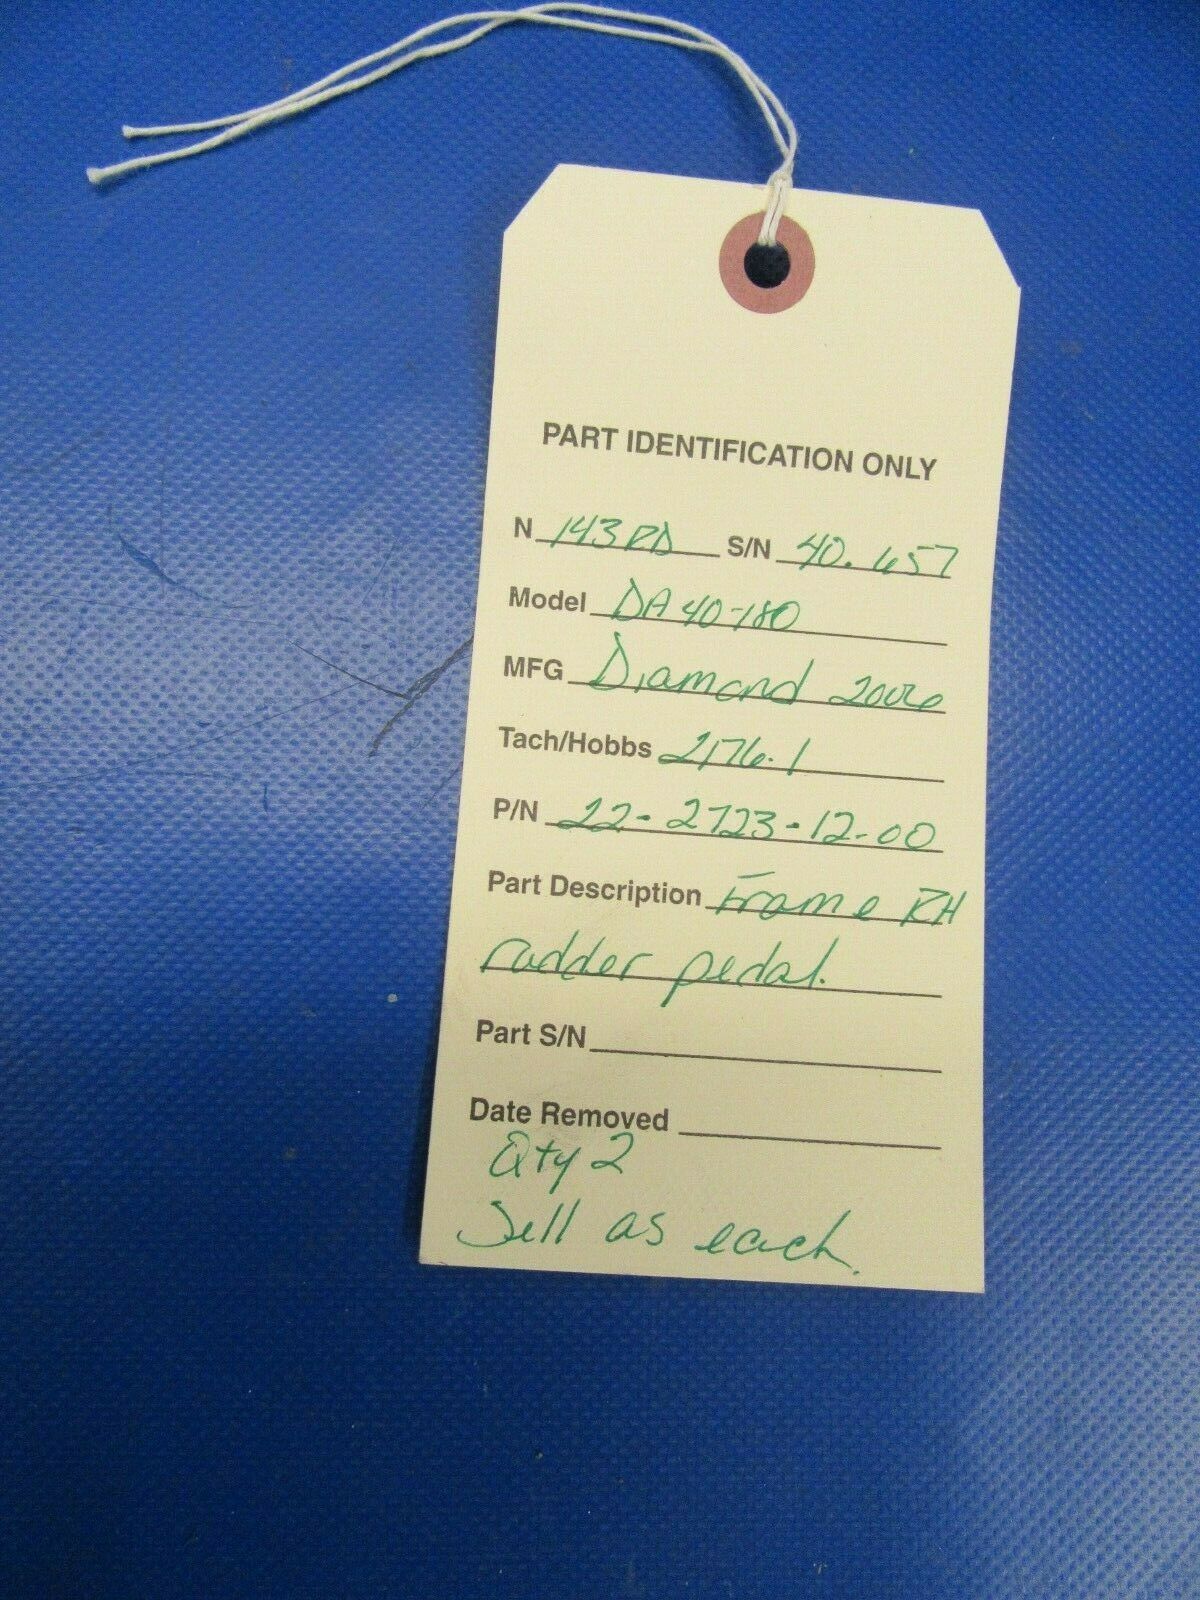 PART IDENTIFICATION ONLY
N 143PD S/N 40.657
Model DA40-180
MFG Diamond 2006
Tach/Hobbs 2176.1
P/N 22-2723-12-00
Part Description Frame RH
rudder pedal.
Part S/N
Date Removed
Qty 2
Sell as each.